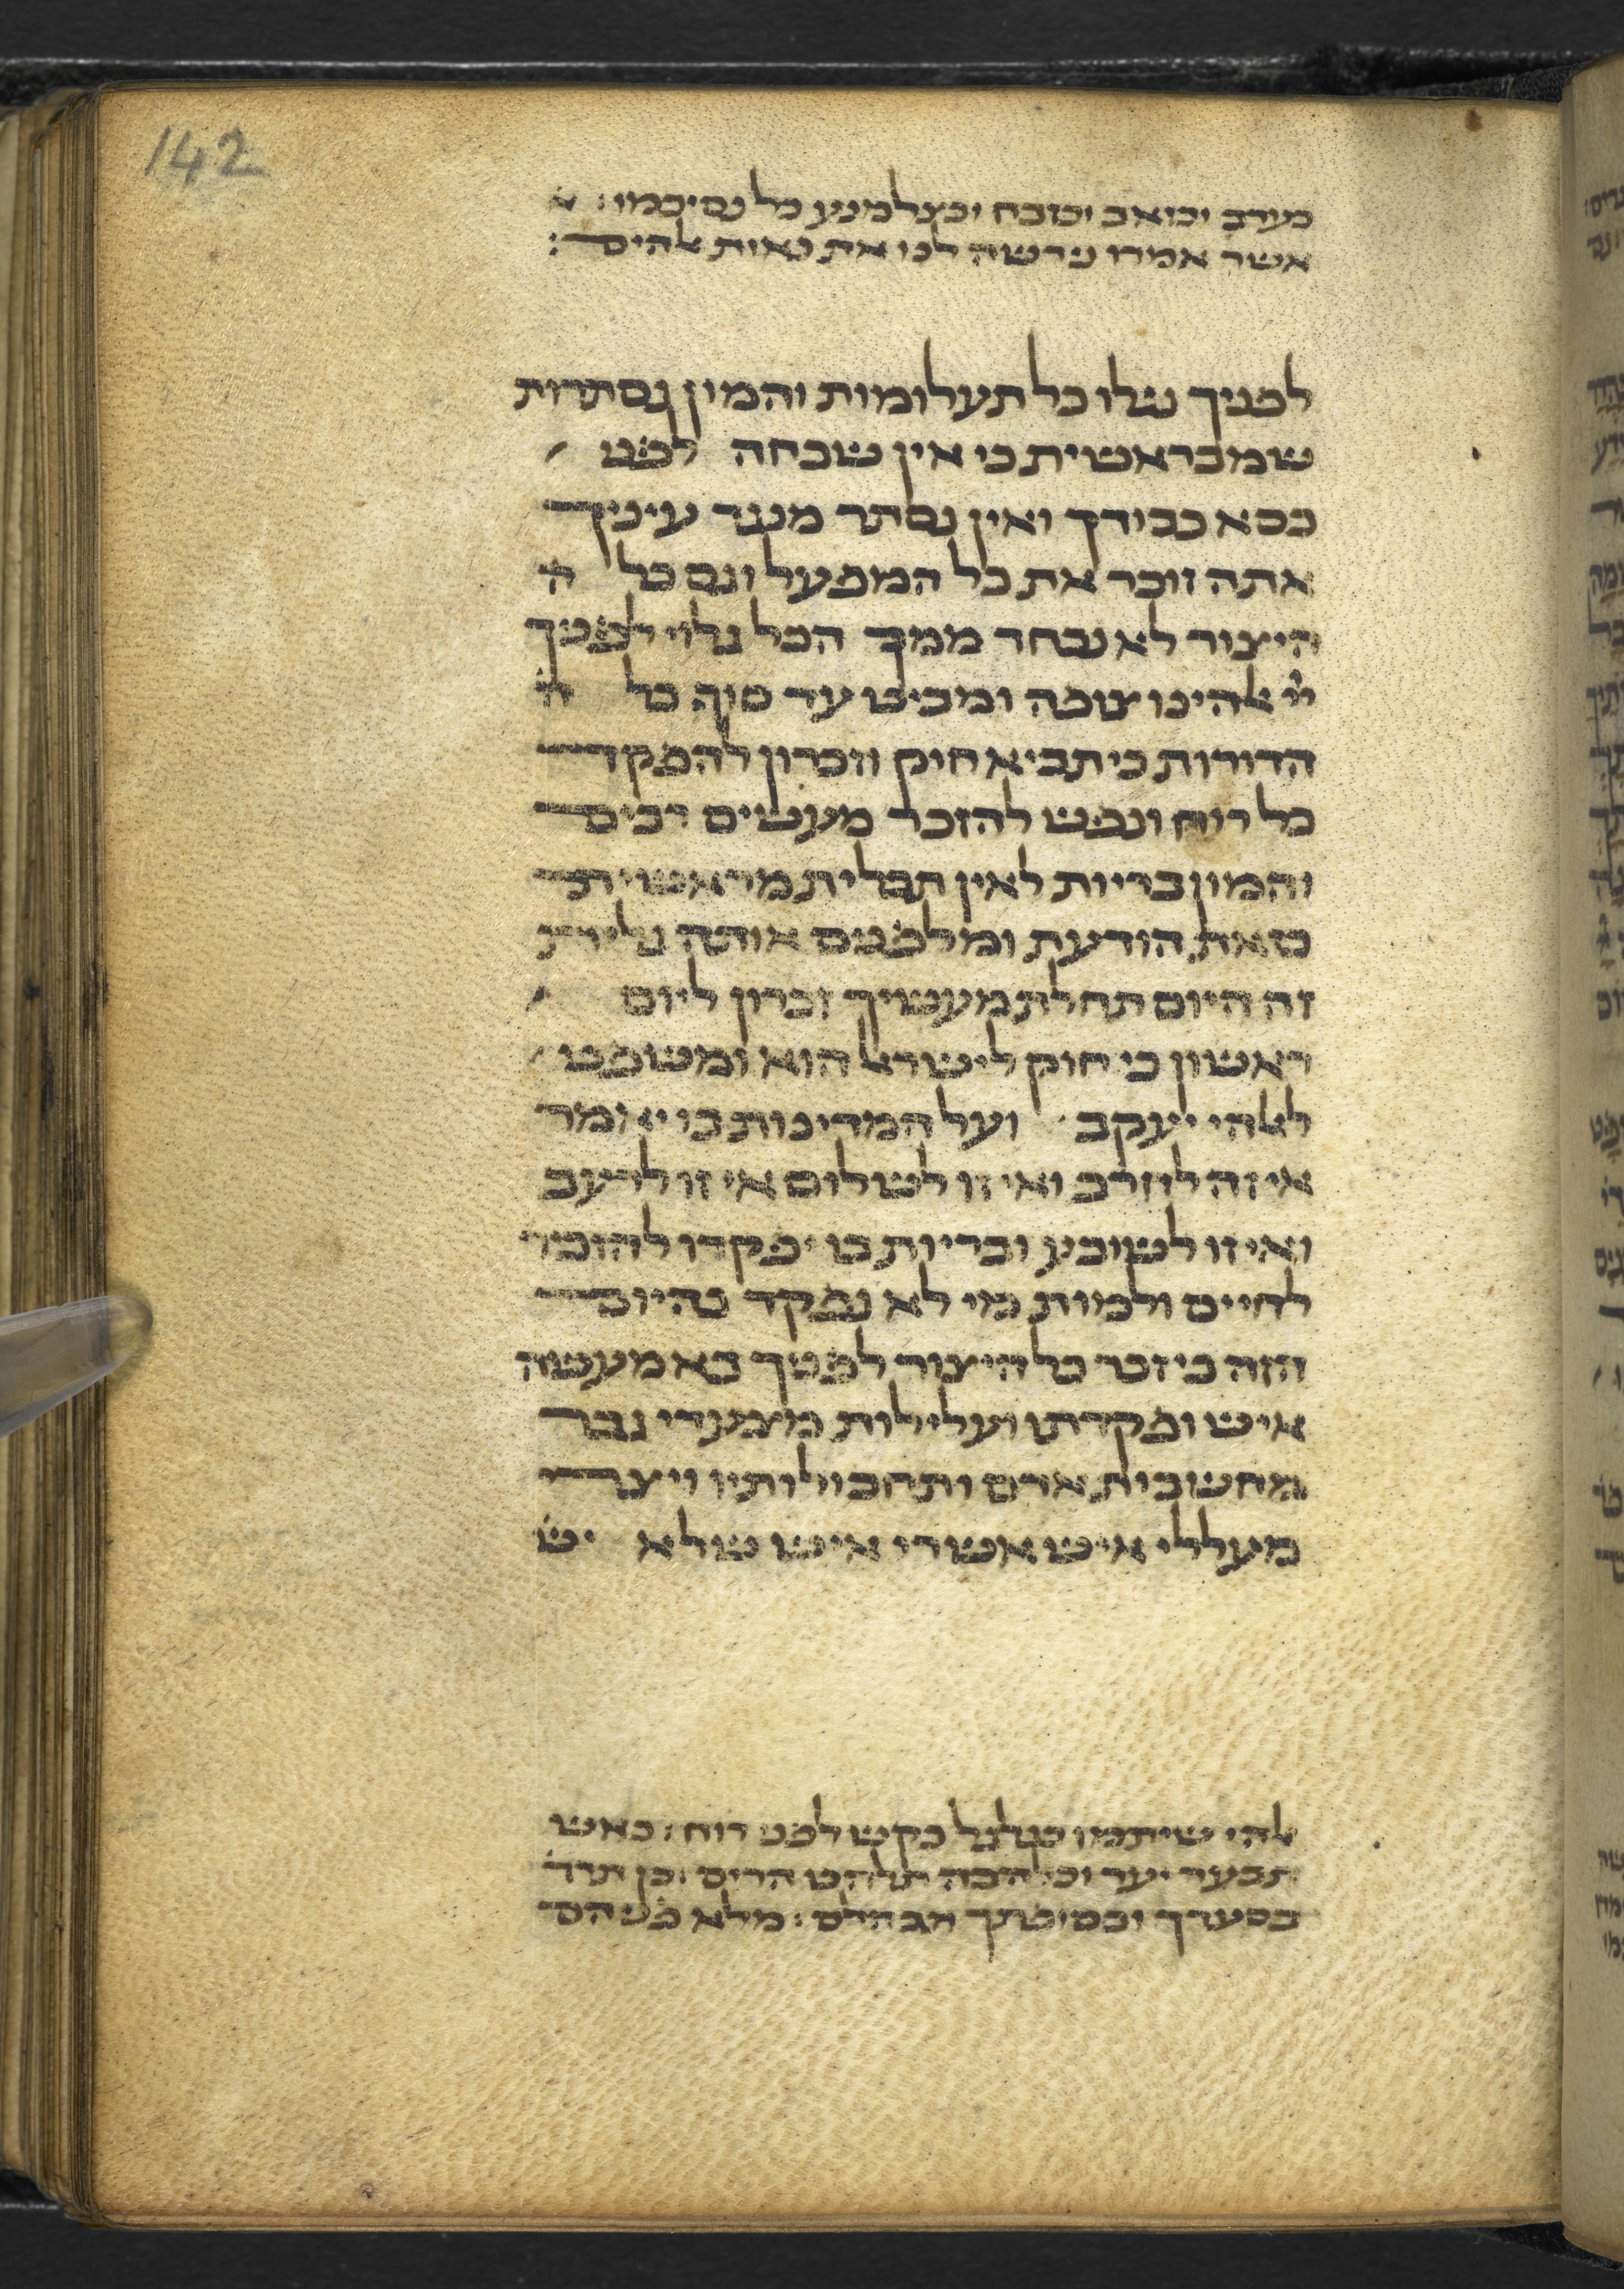 142
כעורב וכזאב וכזבח וכצלמנע כל נסיכמו׃ א
אשר אמרו נירשה לנו את נאות אלהים׃
לפניך נגלו כל תעלומות והמון נסתרות
שמבראשית כי אין שכחה לפני
כסא כבודך ואין נסתר מנגד עיניך
אתה זוכר את כל המפעל וגם כל ה
היצור לא נכחד ממך הכל גלוי לפניך
ייי אלהינו צופה ומביט עד סוף כל ה
הדורות כי תביא חוק וזכרון להפקד
כל רוח ונפש להזכר מעשים רבים
והמון בריות לאין תכלית מראשית
כזאת הודעת ומלפנים אותה גלית
זה היום תחלת מעשיך זכרון ליום
ראשון כי חוק לישראל הוא ומשפט
לאלהי יעקב ועל המדינות בו יאמר
אי זה לחרב ואי זו לשלום אי זו לרעב
ואי זו לשובע ובריות בו יפקדו להזכיר
לחיים ולמות מי לא נפקד כהיום
הזה כי זכר כל היצור לפניך בא מעשה
איש ופקדתו ועלילות מצעדי גבר
מחשבות אדם ותחבולותיו ויצרי
מעללי איש אשרי איש שלא יש
אלהי שיתמו כגלגל כקש לפני רוח׃ כאש
תבער יער וכלהבה תלהט הרים׃ כן תרד
בסערך ובסופתך תבהלם׃ מלא פניהם